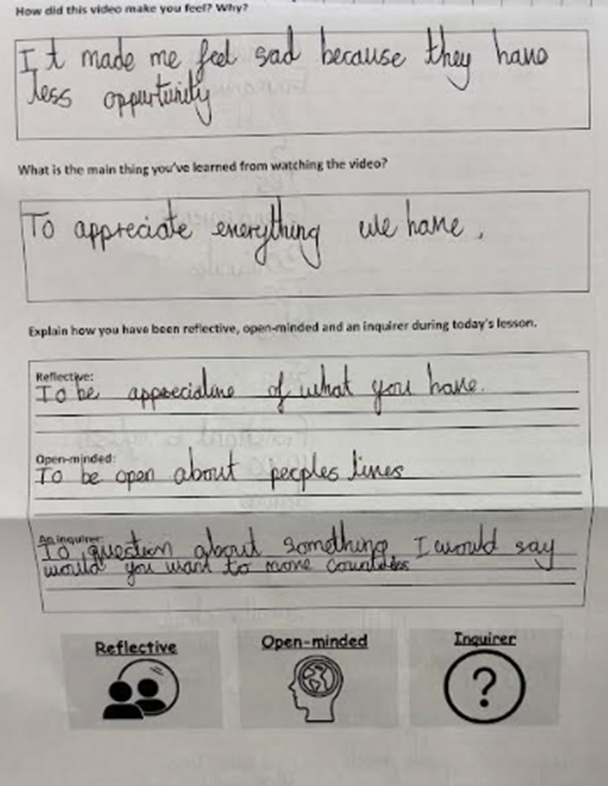 How did this video make you feel? Why?
It made me feel sad because they have
less oppurtunity
What is the main thing you've learned from watching the video?
To appreciate everything we have.
Explain how you have been reflective, open-minded and an inquirer during today's lesson.
Reflective:
To be appreciative of what you have.
Open-minded:
To be open about peoples lives
An inquirer:
To question about something, I would say
would you want to move countries
Reflective
Open-minded
Inquirer
?